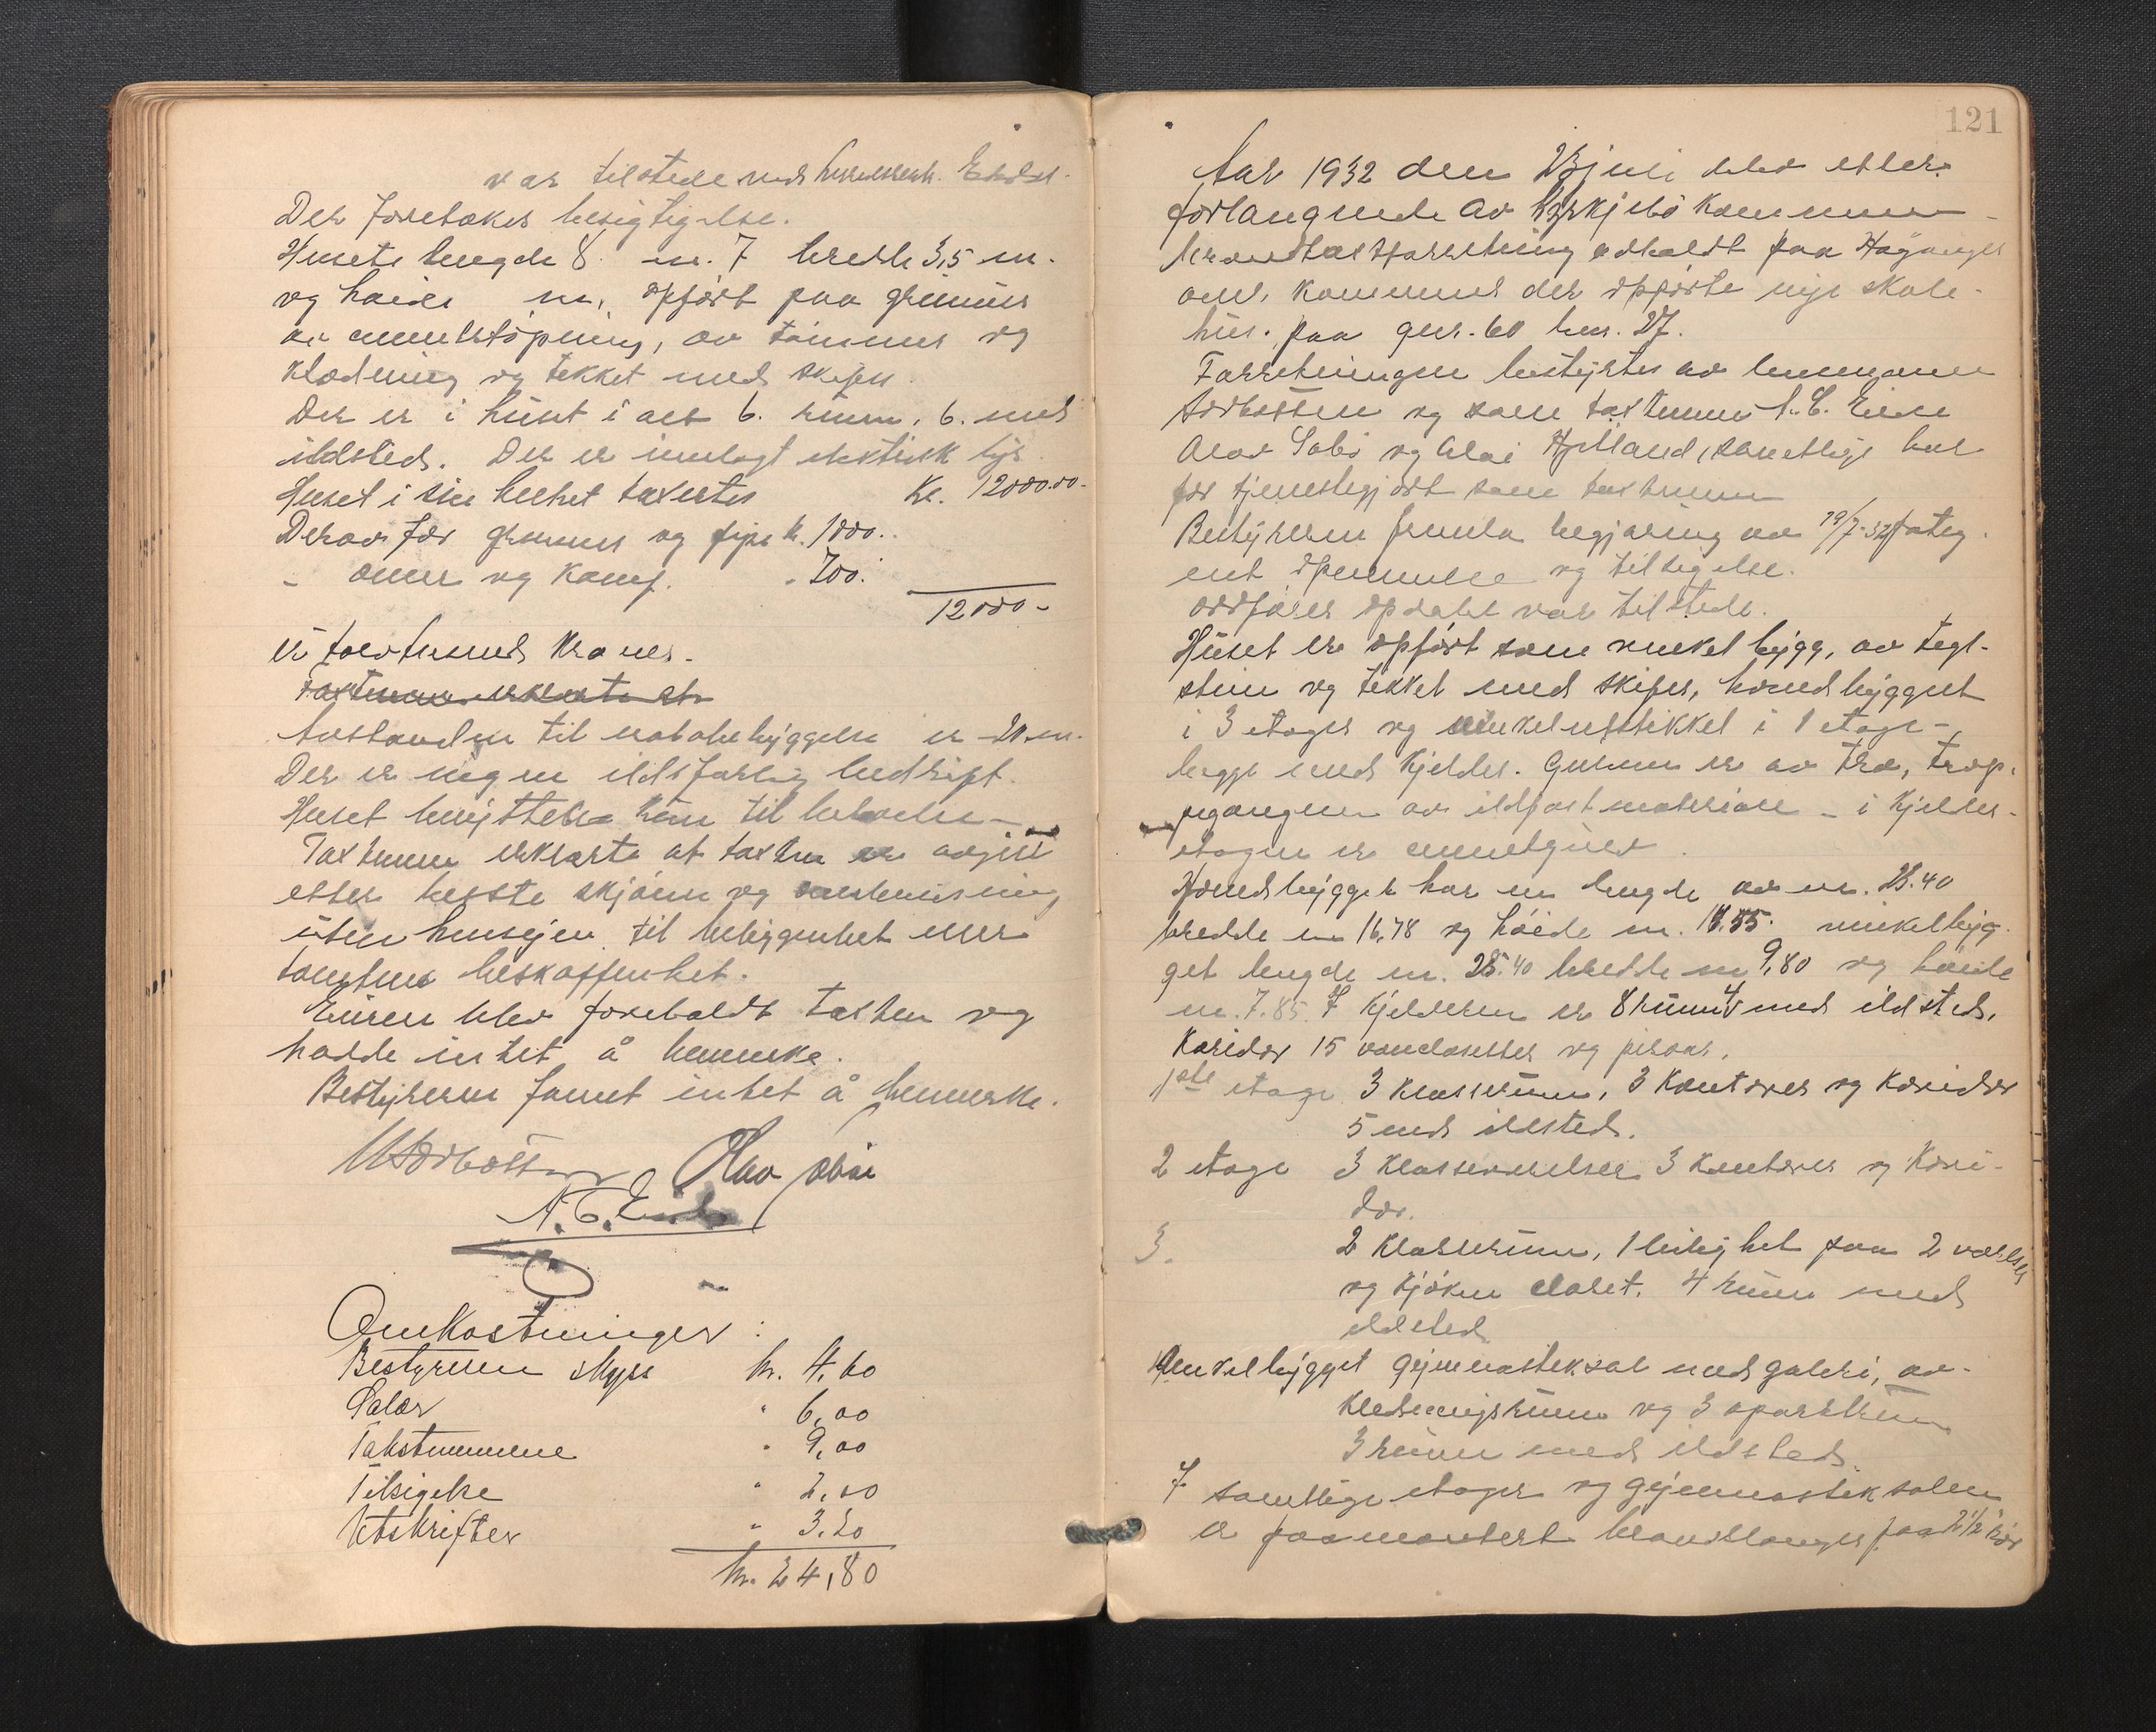 var tilstede med
Der foretokes besigtigelse.
Husets lengde 8 m. 7 bredde 3,5 m.
og høide m. opført paa grunmur
av cementstöpning, av tømmer og
klædning og tekket med skifer.
Der er i huset i alt 6. rum, 6. med
ildsted. Der er innlagt elektrisk lys.
Huset i sin helhet taxertes Kr. 12000.00-
Derav for grunmur og pipe k. 1000.-
- ovner og komf. - 700.-
12000-
er tolvtusend Kroner.
Taxtmenn erklærte at
Avstanden til nabobebyggelse er 20 m.
Der er ingen ildsfarlig bedrift.
Huset benyttes kun til beboelse -
Taxtmenn erklærte at taxten er avgitt
efter beste skjønn og overbevisning
uten hensyn til beliggenhet eller
tomtens beskaffenhet.
Eieren blev foreholdt taxten og
hadde intet å bemerke.
Bestyreren fannt intet å bemerke.
Olav Søbø
A. E. Eide
Omkostninger:
Bestyreren skyss kr. 4,60
Salær " 6,00
Takstmennene " 9,00
Tilsigelse " 2,00
Utskrifter " 3.20
kr. 24,80
121
Aar 1932 den 23 juli blev efter
forlangende av Kyrkjebø Kommune
brandtaxtforretning avholdt paa Høyanger
over kommunes der opførte nye skole-
hus. paa gnr. 60 bnr. 27.
Forretningen bestyrtes av lensmann
og som taxtmenn A. E. Eide
Olav Søbø og Olai Hjetland, samtlige har
før tjenestegjort som taxtmenn
Bestyreren fremla begjæring av 19/7-32 påteg-
net opnevnelse og tilsigelse.
ordfører Opdahl var tilstede.
Huset er opført som vinkelbygg, av tegl-
sten og tekket med skifer, hovedbygget
i 3 etager og vinkelutstikket i 1 etage -
begge med kjelder. Gulvene er av tre, trap-
pegangene av ildfast materiale - i kjelder-
etagen er cementgulv.
Hovedbygget har en lengde av m. 28.40
bredde m 16,78 og høide m. 11.55. vinkelbyg-
get lengde m. 25.40 bredde m 9,80 og høide
m. 7.85. I kjelderen er 8 rum 4 med ildsted.
Koridor 15 vandclosetter og pissoar.
1ste etage 3 klasserum, 3 kontorer og koridor
5 med ildsted.
2 etage 3 klasseværelser 3 kontorer og kori-
dor.
3. 2 klasserum, 1 leilighet paa 2 værelser
og kjøken closet. 4 rum med
ildsted
Vinkelbygget gymnastiksal med galeri, av-
klædningsrum og 3 aparatrum
3 rum med ildsted.
I samtlige etager og gymnastiksalen
er paamontert brandslanger paa 2 1/2" rør